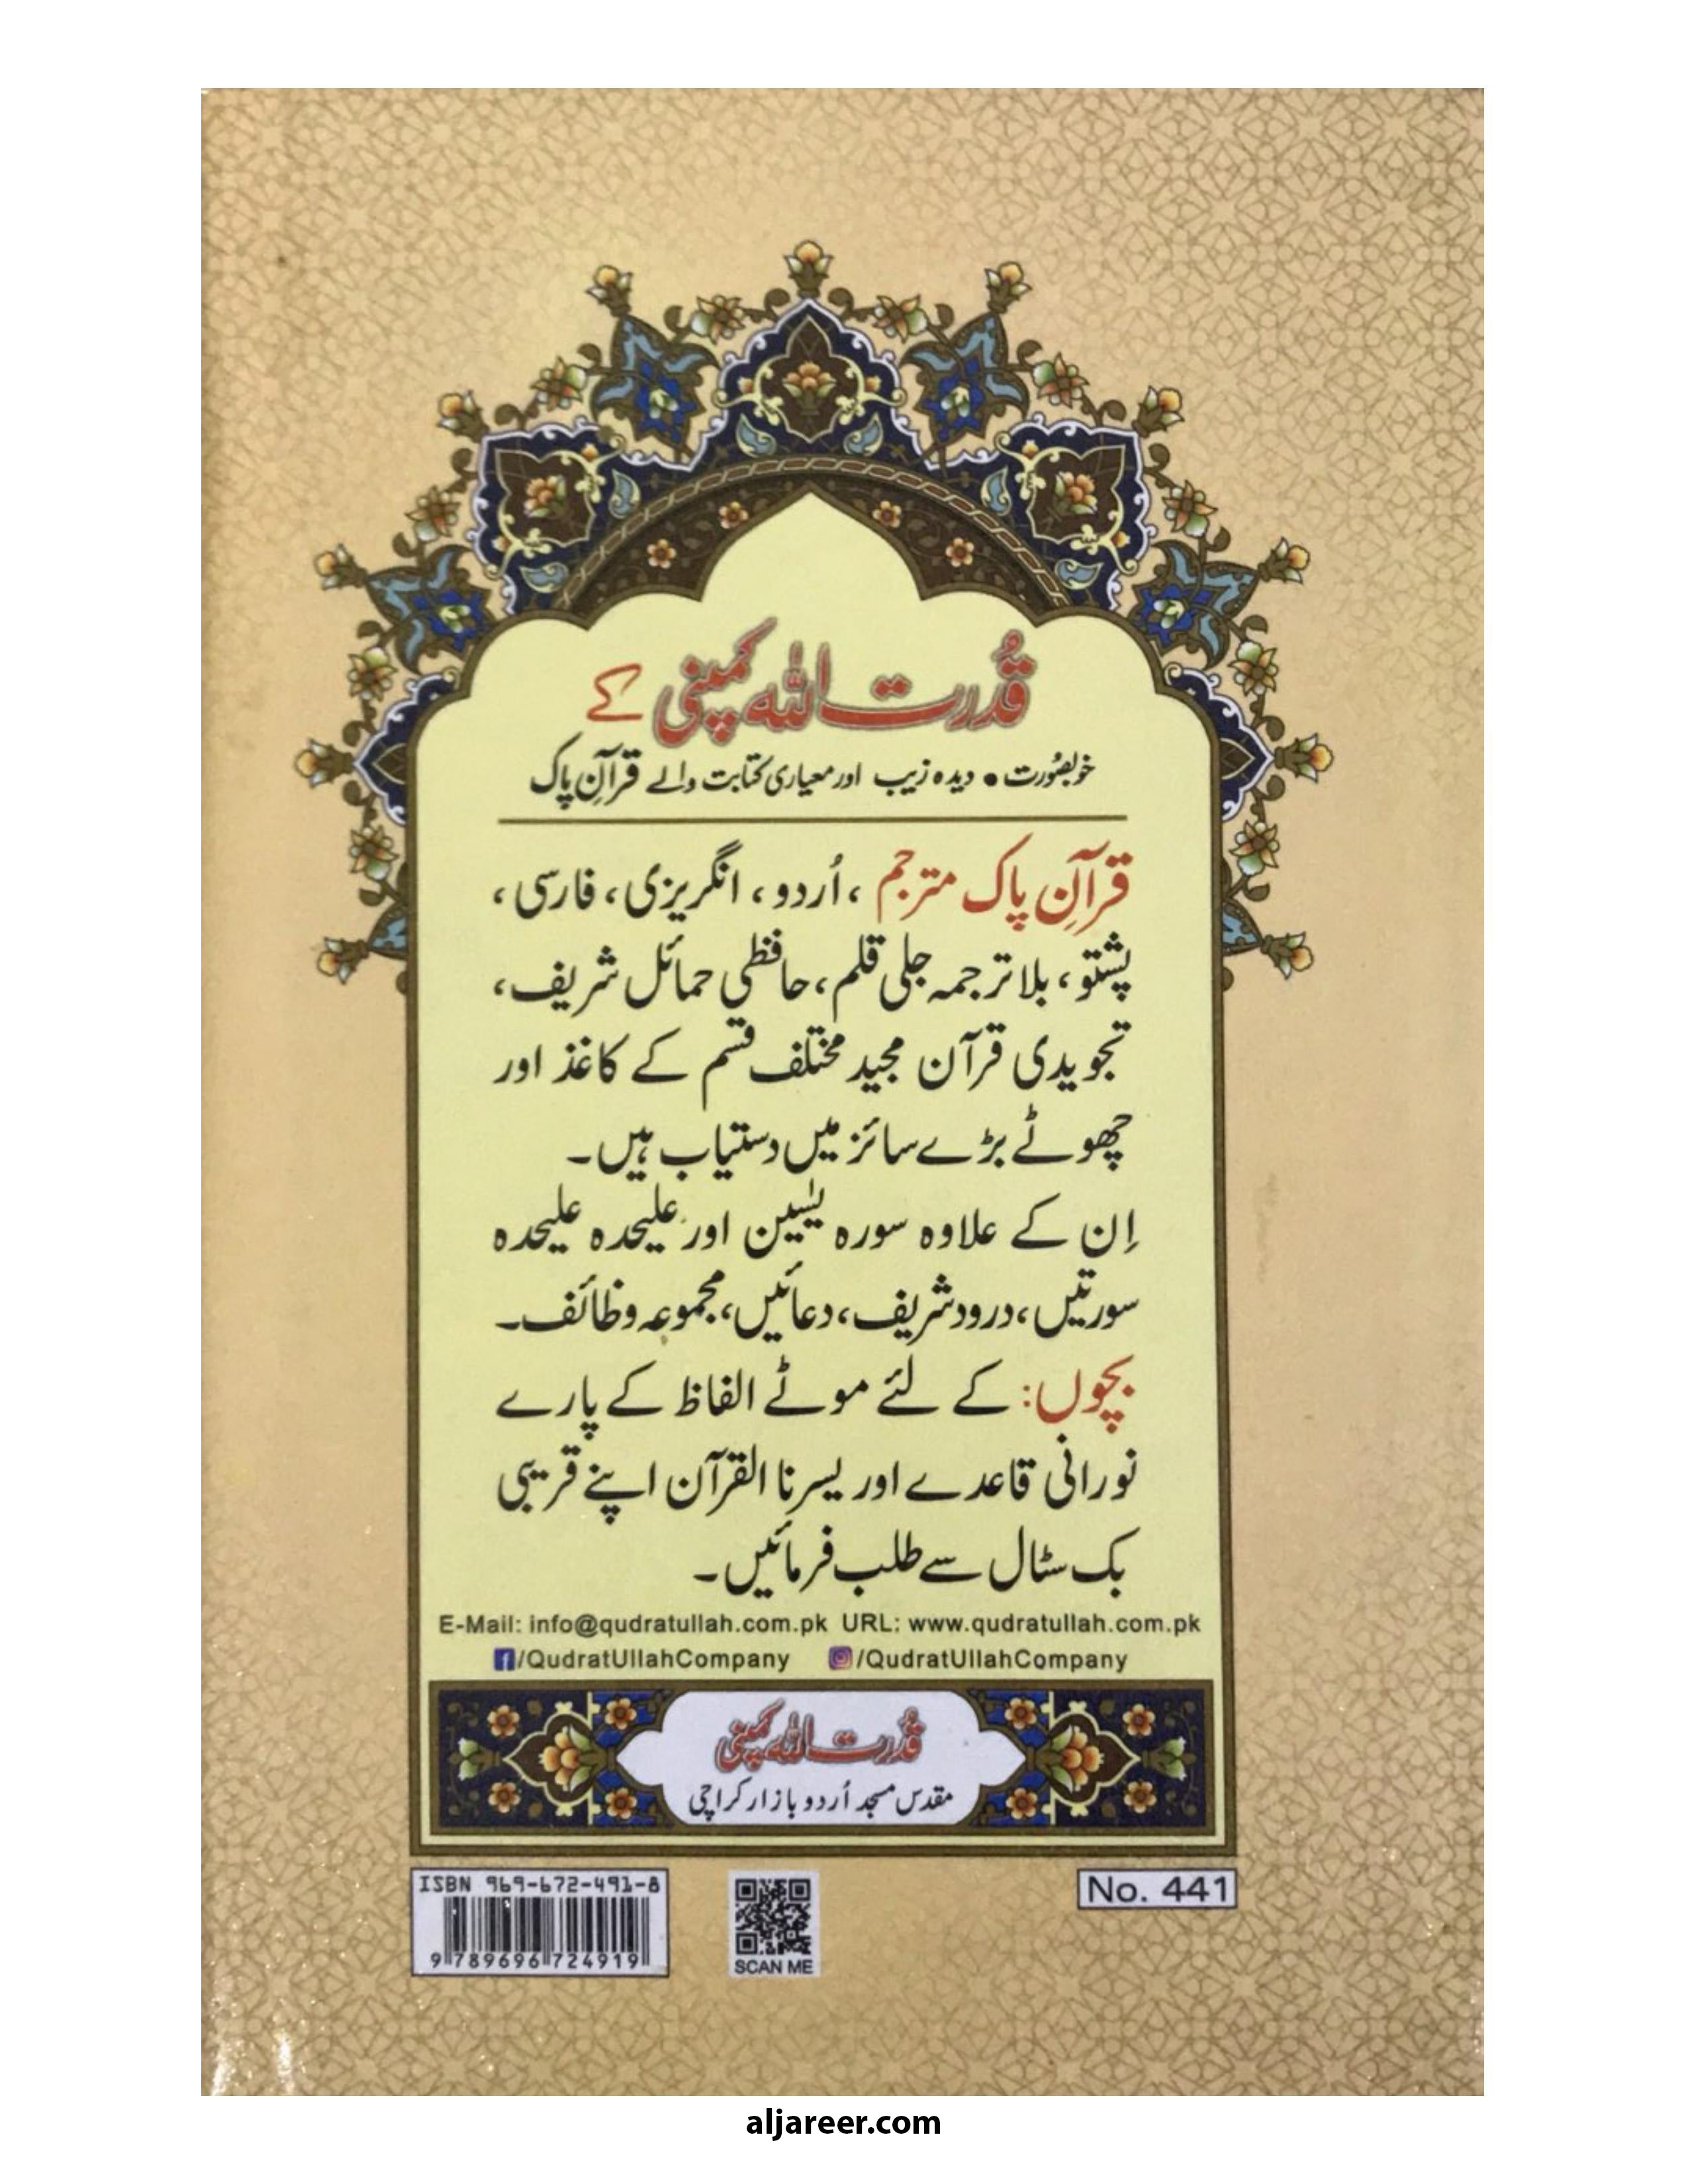 قُدرت اللہ کمپنی کے
خوبصُورت • دیدہ زیب اور معیاری کتابت والے قرآنِ پاک
قرآنِ پاک مترجم ، اُردو ، انگریزی ، فارسی ،
پشتو ، بلا ترجمہ جلی قلم ، حافظی حمائل شریف ،
تجویدی قرآن مجید مختلف قسم کے کاغذ اور
چھوٹے بڑے سائز میں دستیاب ہیں۔
اِن کے علاوہ سورہ یٰسین اور علیحدہ علیحدہ
سورتیں ، درود شریف ، دعائیں ، مجموعہ وظائف۔
بچوں: کے لئے موٹے الفاظ کے پارے
نورانی قاعدے اور یسرنا القرآن اپنے قریبی
بک سٹال سے طلب فرمائیں۔
E-Mail: info@qudratullah.com.pk URL: www.qudratullah.com.pk
/QudratUllahCompany /QudratUllahCompany
قُدرت اللہ کمپنی
مقدس مسجد اُردو بازار کراچی
ISBN 969-672-491-8
No. 441
9 789696 724919
SCAN ME
aljareer.com